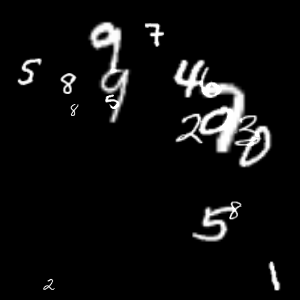 9 7
5 8 9 4 6
8 5 7
2 9 3 0
5 8
2 1